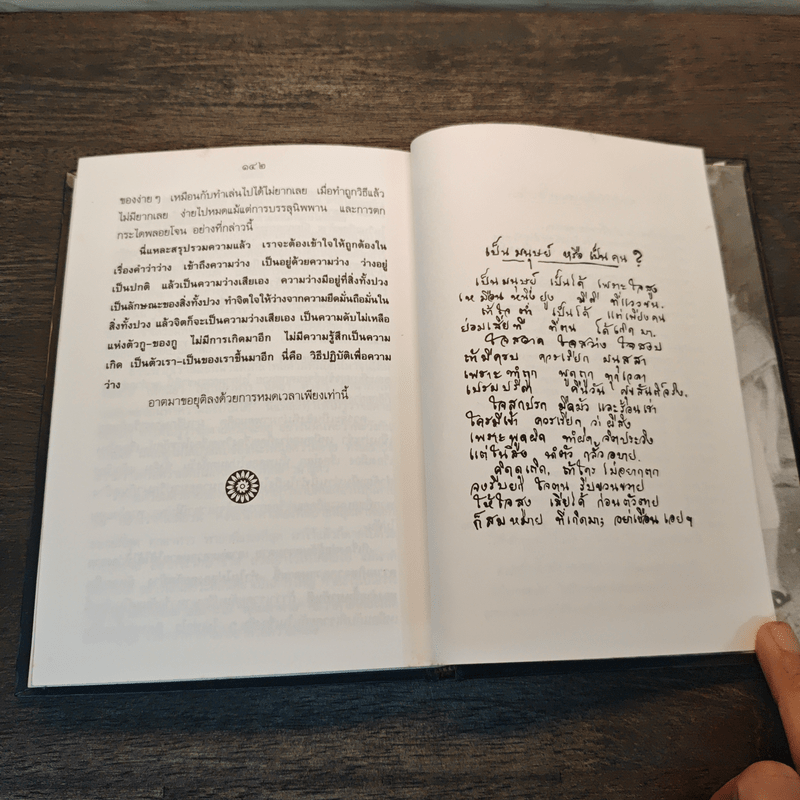 ๑๔๒
ของง่ายๆ เหมือนกับทำเล่นไปได้ไม่ยากเลย เมื่อทำถูกวิธีแล้ว
ไม่มียากเลย ง่ายไปหมดแม้แต่การบรรลุนิพพาน และการตก
กระไดพลอยโจน อย่างที่กล่าวนี้
นี่แหละสรุปรวมความแล้ว เราจะต้องเข้าใจให้ถูกต้องใน
เรื่องคำว่าว่าง เข้าถึงความว่าง เป็นอยู่ด้วยความว่าง ว่างอยู่
เป็นปกติ แล้วเป็นความว่างเสียเอง ความว่างมีอยู่ที่สิ่งทั้งปวง
เป็นลักษณะของสิ่งทั้งปวง ทำจิตใจให้ว่างจากความยึดมั่นถือมั่นใน
สิ่งทั้งปวง แล้วจิตก็จะเป็นความว่างเสียเอง เป็นความดับไม่เหลือ
แห่งตัวกู-ของกู ไม่มีการเกิดมาอีก ไม่มีความรู้สึกเป็นความ
เกิด เป็นตัวเรา-เป็นของเราขึ้นมาอีก นี่คือ วิธีปฏิบัติเพื่อความ
ว่าง
อาตมาขอยุติลงด้วยการหมดเวลาเพียงเท่านี้
เป็นมนุษย์ หรือ เป็นคน ?
เป็นมนุษย์ เป็นได้ เพราะใจสูง
เหมือนหนึ่งยูง มีดี ที่แววขน.
ถ้าใจต่ำ เป็นได้ แต่เพียงคน
ย่อมเสียที ที่ตน ได้เกิดมา.
ใจสอาด ใจสว่าง ใจสงบ
ถ้ามีครบ ควรเรียก มนุสสา
เพราะทำถูก พูดถูก ทุกเวลา
เปรมปรีดา คืนวัน ศุขสันต์จริง.
ใจสกปรก มืดมัว และร้อนเร่า
ใครมีเข้า ควรเรียก ว่าผีสิง
เพราะพูดผิด ทำผิด จิตประวิง
แต่ในสิ่ง นำตัว กลั้วอบาย.
คิดดูเถิด, ถ้าใคร ไม่อยากตก
จงรีบยก ใจตน รีบขวนขวาย
ให้ใจสูง เสียได้ ก่อนตัวตาย
ก็สมหมาย ที่เกิดมา; อย่าเชือนเอยฯ